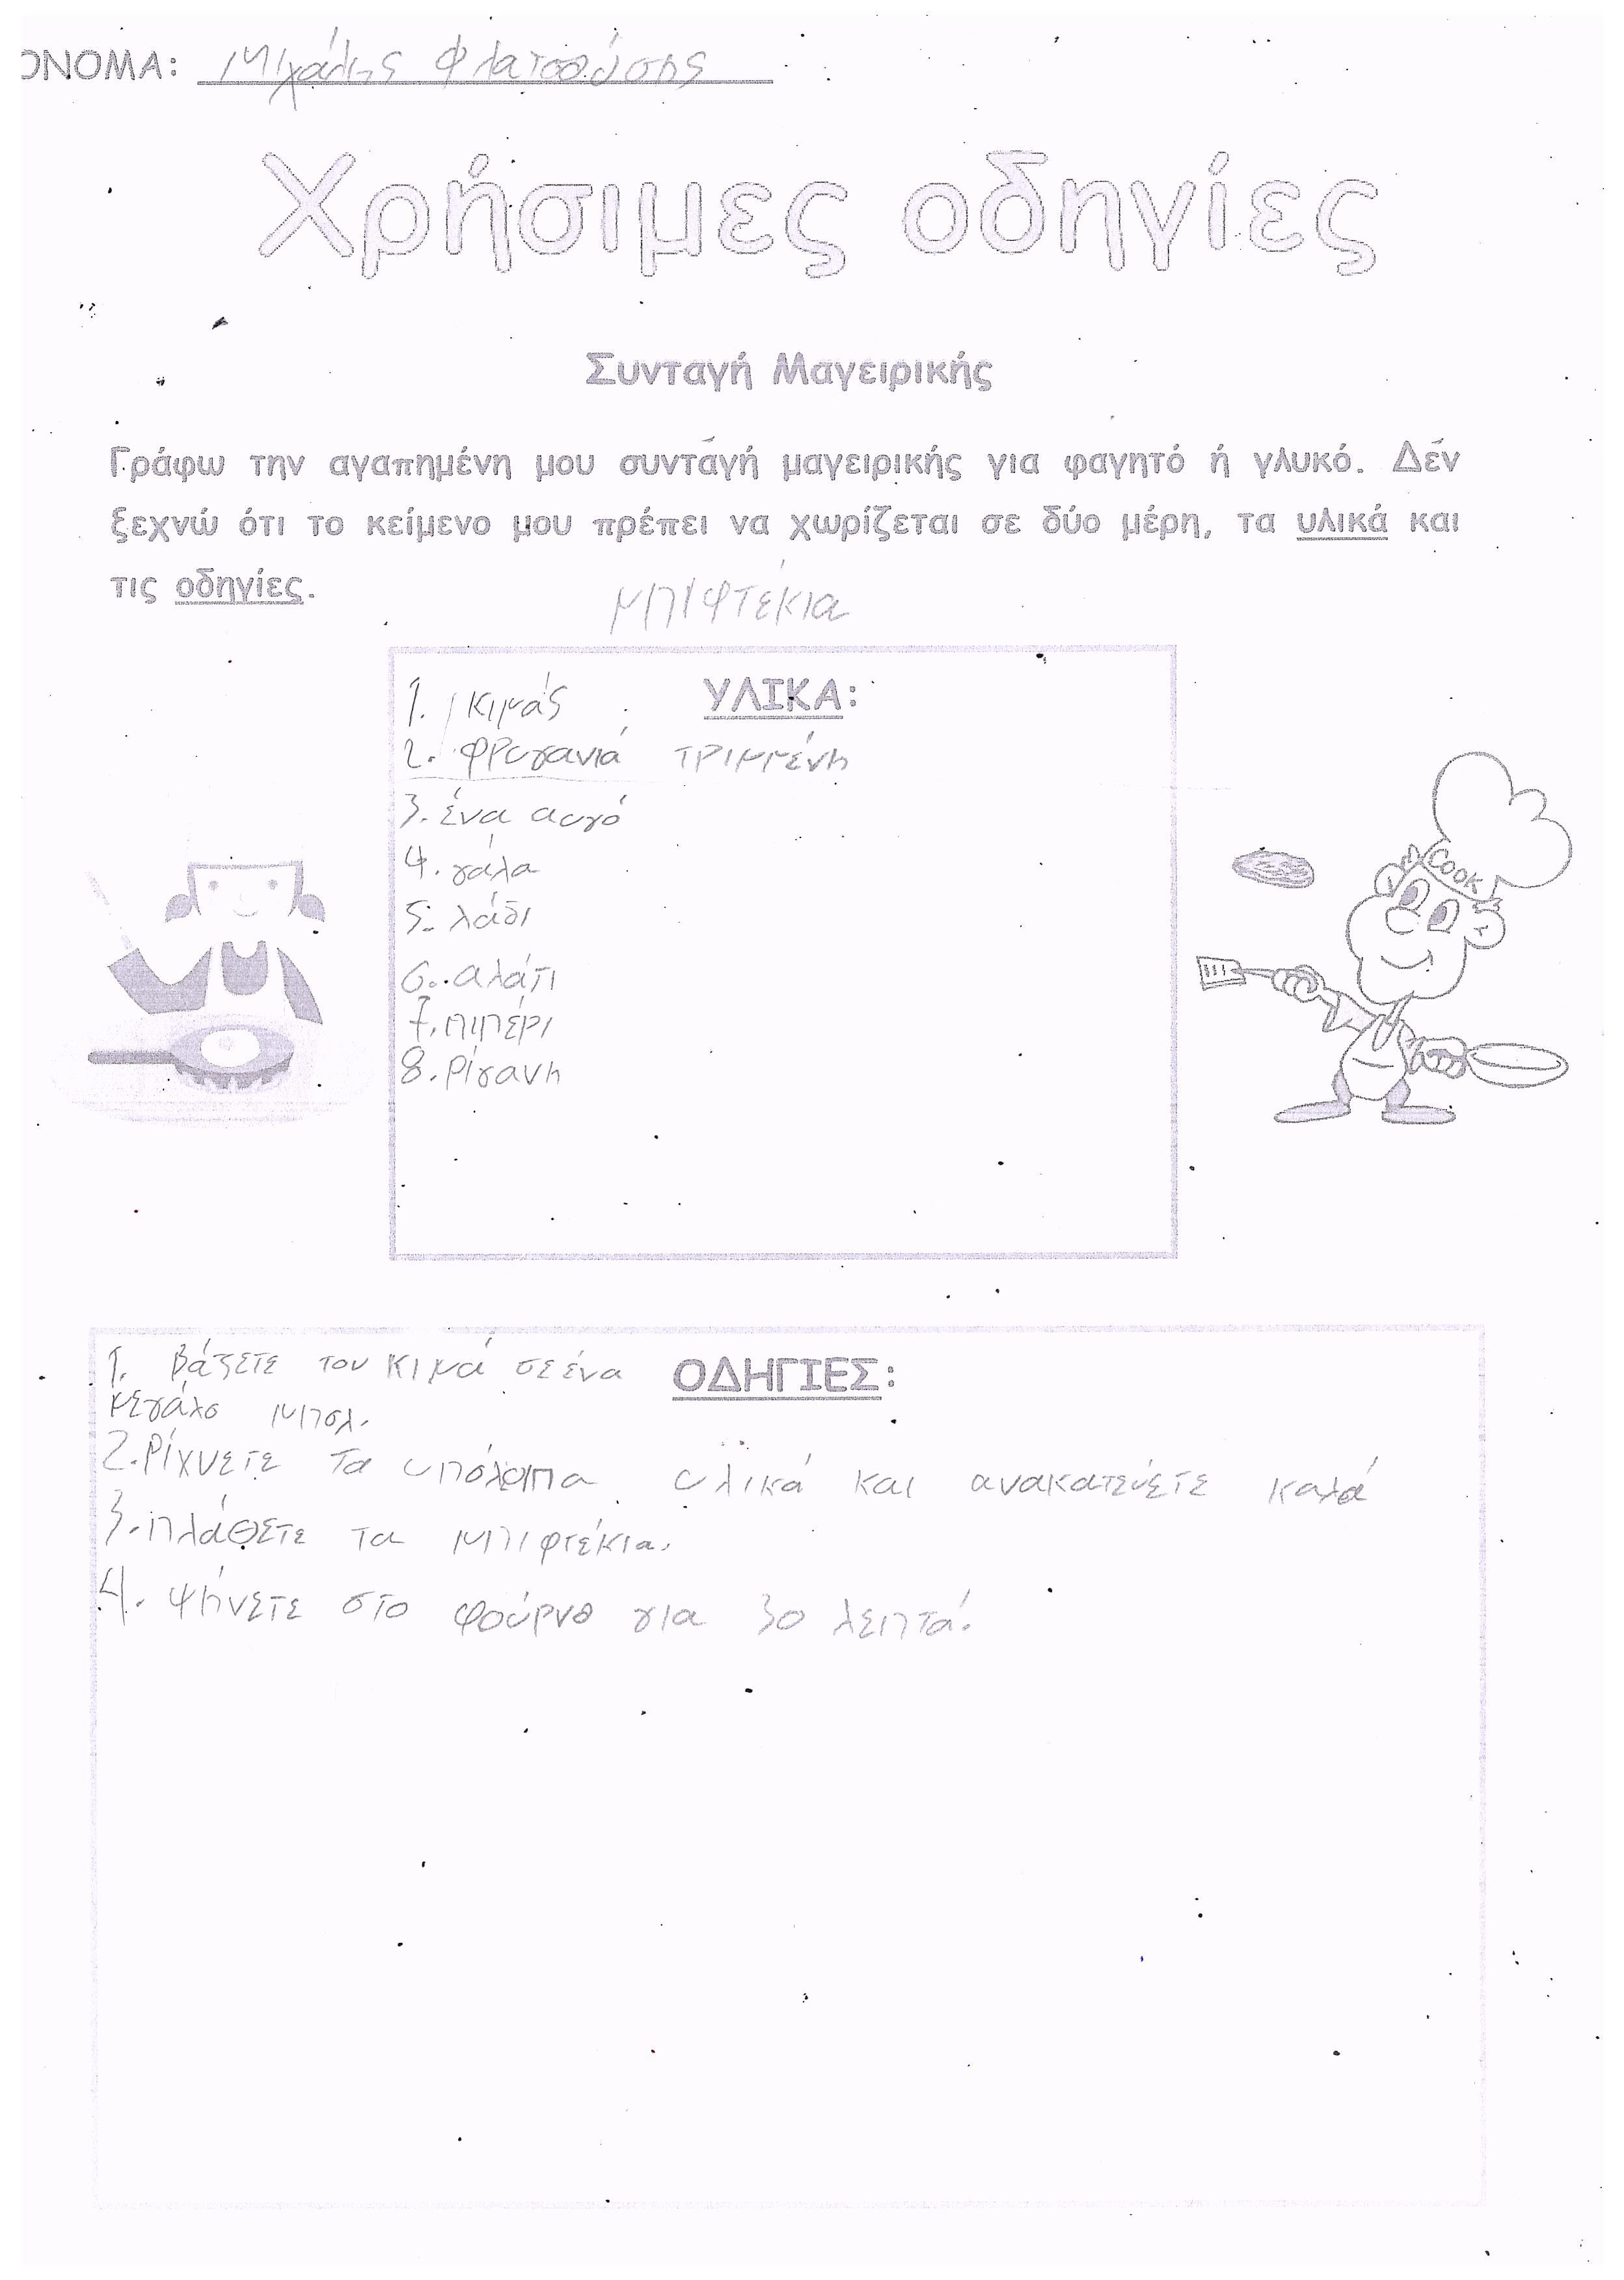 ΟΝΟΜΑ: Μιχάλης
Χρήσιμες οδηγίες
Συνταγή Μαγειρικής
Γράφω την αγαπημένη μου συνταγή μαγειρικής για φαγητό ή γλυκό. Δεν
ξεχνώ ότι το κείμενο μου πρέπει να χωρίζεται σε δύο μέρη, τα υλικά και
τις οδηγίες.
μπιφτέκια
ΥΛΙΚΑ:
1. κιμάς
2. φρυγανιά τριμμένη
3. ένα αυγό
4. γάλα
5. λάδι
6. αλάτι
7. πιπέρι
8. ρίγανη
COOK
ΟΔΗΓΙΕΣ:
1. βάζετε τον κιμά σε ένα
μεγάλο μπολ.
2. Ρίχνετε τα υπόλοιπα υλικά και ανακατεύετε καλά
3. πλάθετε τα μπιφτέκια.
4. ψήνετε στο φούρνο για 30 λεπτά.